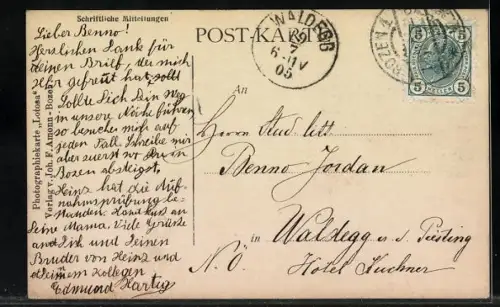 Schriftliche Mitteilungen
Lieber Benno!
Herzlichen Dank für
deinen Brief, der mich
sehr gefreut hat. Sollte
Dich Dein Weg
in unsere Nähe führen
so besuche mich auf
jeden Fall. Schreibe mir
aber zuerst wo Du in
Bozen absteigst.
Heinz hat die Auf-
nahmsprüfung be-
standen. Handkuss an
Deine Mama, Viele Grüsse
an Dich und Deinen
Bruder von Heinz und
Deinem Collegen
Edmund Hartig
Photographiekarte „Lotosa“
Verlag v. Joh. F. Amonn-Bozen
POST-KARTE
WALDEGG
7
6 IV
05
BOZEN
5 5
HELLER
An
Herrn Stud.
Benno Jordan
in Waldegg a. d. Piesting
N.Ö. Hotel